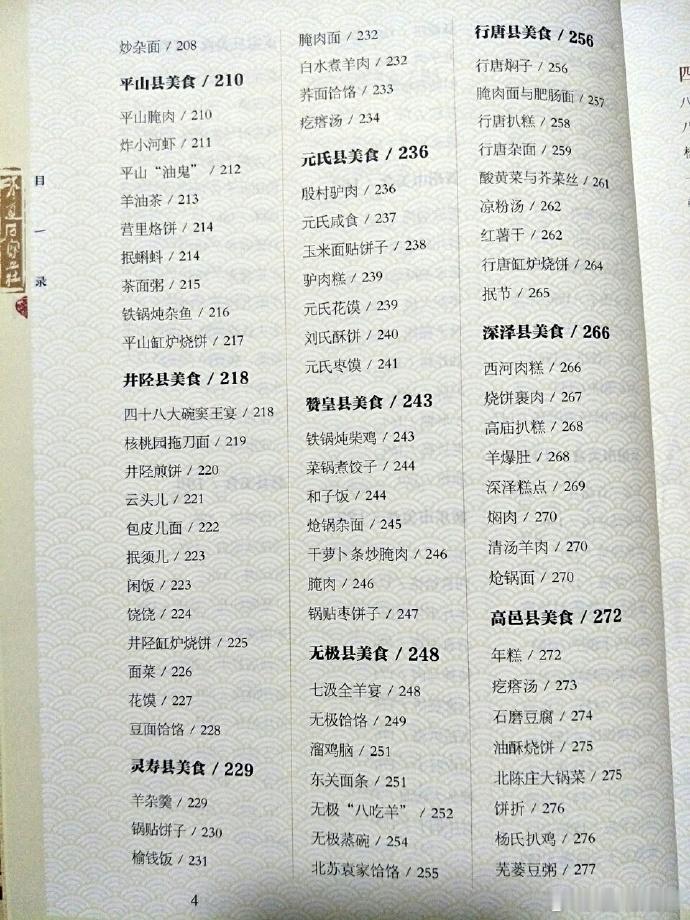 目
录
炒杂面 / 208
平山县美食 / 210
平山腌肉 / 210
炸小河虾 / 211
平山“油鬼” / 212
羊油茶 / 213
营里烙饼 / 214
抿蝌蚪 / 214
茶面粥 / 215
铁锅炖杂鱼 / 216
平山缸炉烧饼 / 217
井陉县美食 / 218
四十八大碗窦王宴 / 218
核桃园拖刀面 / 219
井陉煎饼 / 220
云头儿 / 221
包皮儿面 / 222
抿须儿 / 223
闲饭 / 223
饶饶 / 224
井陉缸炉烧饼 / 225
面菜 / 226
花馍 / 227
豆面饸饹 / 228
灵寿县美食 / 229
羊杂羹 / 229
锅贴饼子 / 230
榆钱饭 / 231
腌肉面 / 232
白水煮羊肉 / 232
荞面饸饹 / 233
疙瘩汤 / 234
元氏县美食 / 236
殷村驴肉 / 236
元氏咸食 / 237
玉米面贴饼子 / 238
驴肉糕 / 239
元氏花馍 / 239
刘氏酥饼 / 240
元氏枣馍 / 241
赞皇县美食 / 243
铁锅炖柴鸡 / 243
菜锅煮饺子 / 244
和子饭 / 244
炝锅杂面 / 245
干萝卜条炒腌肉 / 246
腌肉 / 246
锅贴枣饼子 / 247
无极县美食 / 248
七汲全羊宴 / 248
无极饸饹 / 249
溜鸡脑 / 251
东关面条 / 251
无极“八吃羊” / 252
无极蒸碗 / 254
北苏袁家饸饹 / 255
行唐县美食 / 256
行唐焖子 / 256
腌肉面与肥肠面 / 257
行唐扒糕 / 258
行唐杂面 / 259
酸黄菜与芥菜丝 / 261
凉粉汤 / 262
红薯干 / 262
行唐缸炉烧饼 / 264
抿节 / 265
深泽县美食 / 266
西河肉糕 / 266
烧饼裹肉 / 267
高庙扒糕 / 268
羊爆肚 / 268
深泽糕点 / 269
焖肉 / 270
清汤羊肉 / 270
炝锅面 / 270
高邑县美食 / 272
年糕 / 272
疙瘩汤 / 273
石磨豆腐 / 274
油酥烧饼 / 275
北陈庄大锅菜 / 275
饼折 / 276
杨氏扒鸡 / 276
芜荽豆粥 / 277
4